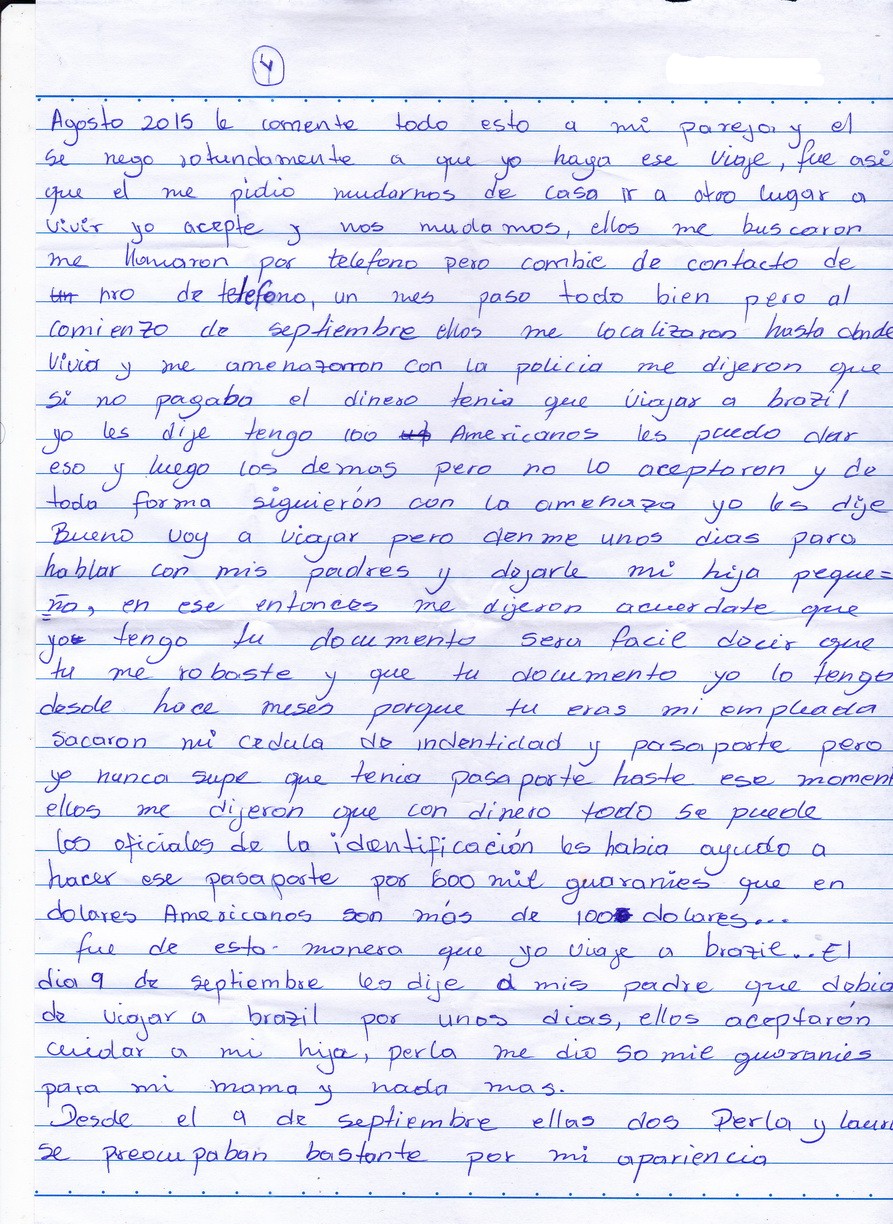 4
Agosto 2015 le comente todo esto a mi pareja y el
se nego rotundamente a que yo haya ese viaje, fue asi
que el me pidio mudarnos de casa ir a otro lugar a
vivir yo acepte y nos mudamos, ellos me buscaron
me llamaron por telefono pero combie de contacto de
un nro de telefono, un mes paso todo bien pero al
comienzo de septiembre ellos me localizaron hasta donde
vivia y me amenazaron con la policia me dijeron que
si no pagaba el dinero tenia que viajar a brazil
yo les dije tengo 100 Americanos les puedo dar
eso y luego los demas pero no lo aceptaron y de
toda forma siguierón con la amenaza yo les dije
Bueno voy a viajar pero denme unos dias para
hablar con mis padres y dejarle mi hija peque=
=ña, en ese entonces me dijeron acuerdate que
yo tengo tu documento sera facil decir que
tu me robaste y que tu documento yo lo tengo
desde hace meses porque tu eras mi empleada
sacaron mi cedula de indentidad y pasaporte pero
yo nunca supe que tenia pasaporte haste ese moment
ellos me dijerón que con dinero todo se puede
los oficiales de la identificación les habia ayudo a
hacer ese pasaporte por 600 mil guaranies que en
dolares Americanos son más de 100 dolares...
fue de esta manera que yo viaje a brazil... El
dia 9 de septiembre les dije a mis padre que debia
de viajar a brazil por unos dias, ellos aceptarón
cuidar a mi hija, perla me dio 50 mil guaranies
para mi mama y nada mas.
Desde el 9 de septiembre ellas dos Perla y laur
se preocupaban bastante por mi apariencia